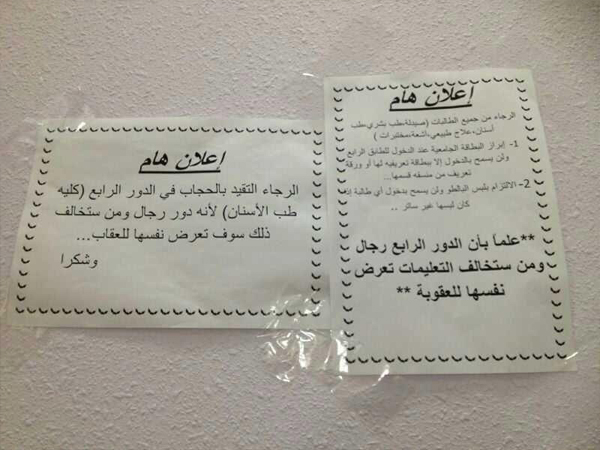 إعلان هام
الرجاء من جميع الطالبات (صيدلة،طب بشري،طب
أسنان،علاج طبيعي،أشعة،مختبرات )
1- إبراز البطاقة الجامعية عند الدخول للطابق الرابع
ولن يسمح بالدخول إلا ببطاقة تعريفيه لها أو ورقة
تعريف من منسقه قسمها..
2- الالتزام بلبس البالطو ولن يسمح بدخول أي طالبة إذا
كان لبسها غير ساتر ..
**علماً بأن الدور الرابع رجال
ومن ستخالف التعليمات تعرض
نفسها للعقوبة **
إعلان هام
الرجاء التقيد بالحجاب في الدور الرابع (كليه
طب الأسنان) لأنه دور رجال ومن ستخالف
ذلك سوف تعرض نفسها للعقاب...
وشكرا